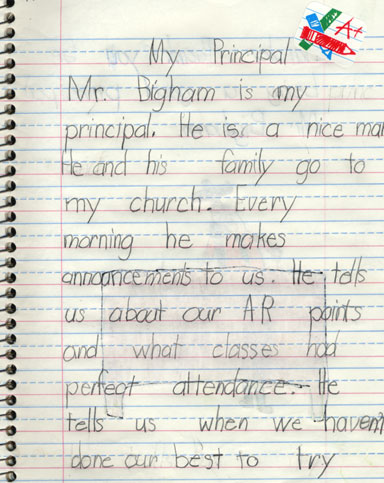 A+
My Principal
Mr. Bigham is my
principal. He is a nice man
He and his family go to
my church. Every
morning he makes
announcements to us. He tells
us about our AR points
and what classes had
perfect attendance. He
tells us when we haven't
done our best to try